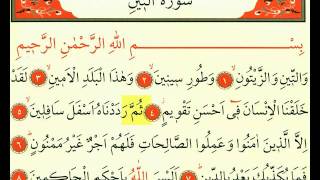 سُورَةُ التِّينِ
بِسْمِ اللّٰهِ الرَّحْمٰنِ الرَّحِيمِ
وَالتِّينِ وَالزَّيْتُونِ ﴿١﴾ وَطُورِ سِينِينَ ﴿٢﴾ وَهٰذَا الْبَلَدِ الْاَمِينِ ﴿٣﴾ لَقَدْ
خَلَقْنَا الْاِنْسَانَ فِي اَحْسَنِ تَقْوِيمٍ ﴿٤﴾ ثُمَّ رَدَدْنَاهُ اَسْفَلَ سَافِلِينَ ﴿٥﴾
اِلَّا الَّذِينَ اٰمَنُوا وَعَمِلُوا الصَّالِحَاتِ فَلَهُمْ اَجْرٌ غَيْرُ مَمْنُونٍ ﴿٦﴾
فَمَا يُكَذِّبُكَ بَعْدُ بِالدِّينِ ﴿٧﴾ اَلَيْسَ اللّٰهُ بِاَحْكَمِ الْحَاكِمِينَ ﴿٨﴾